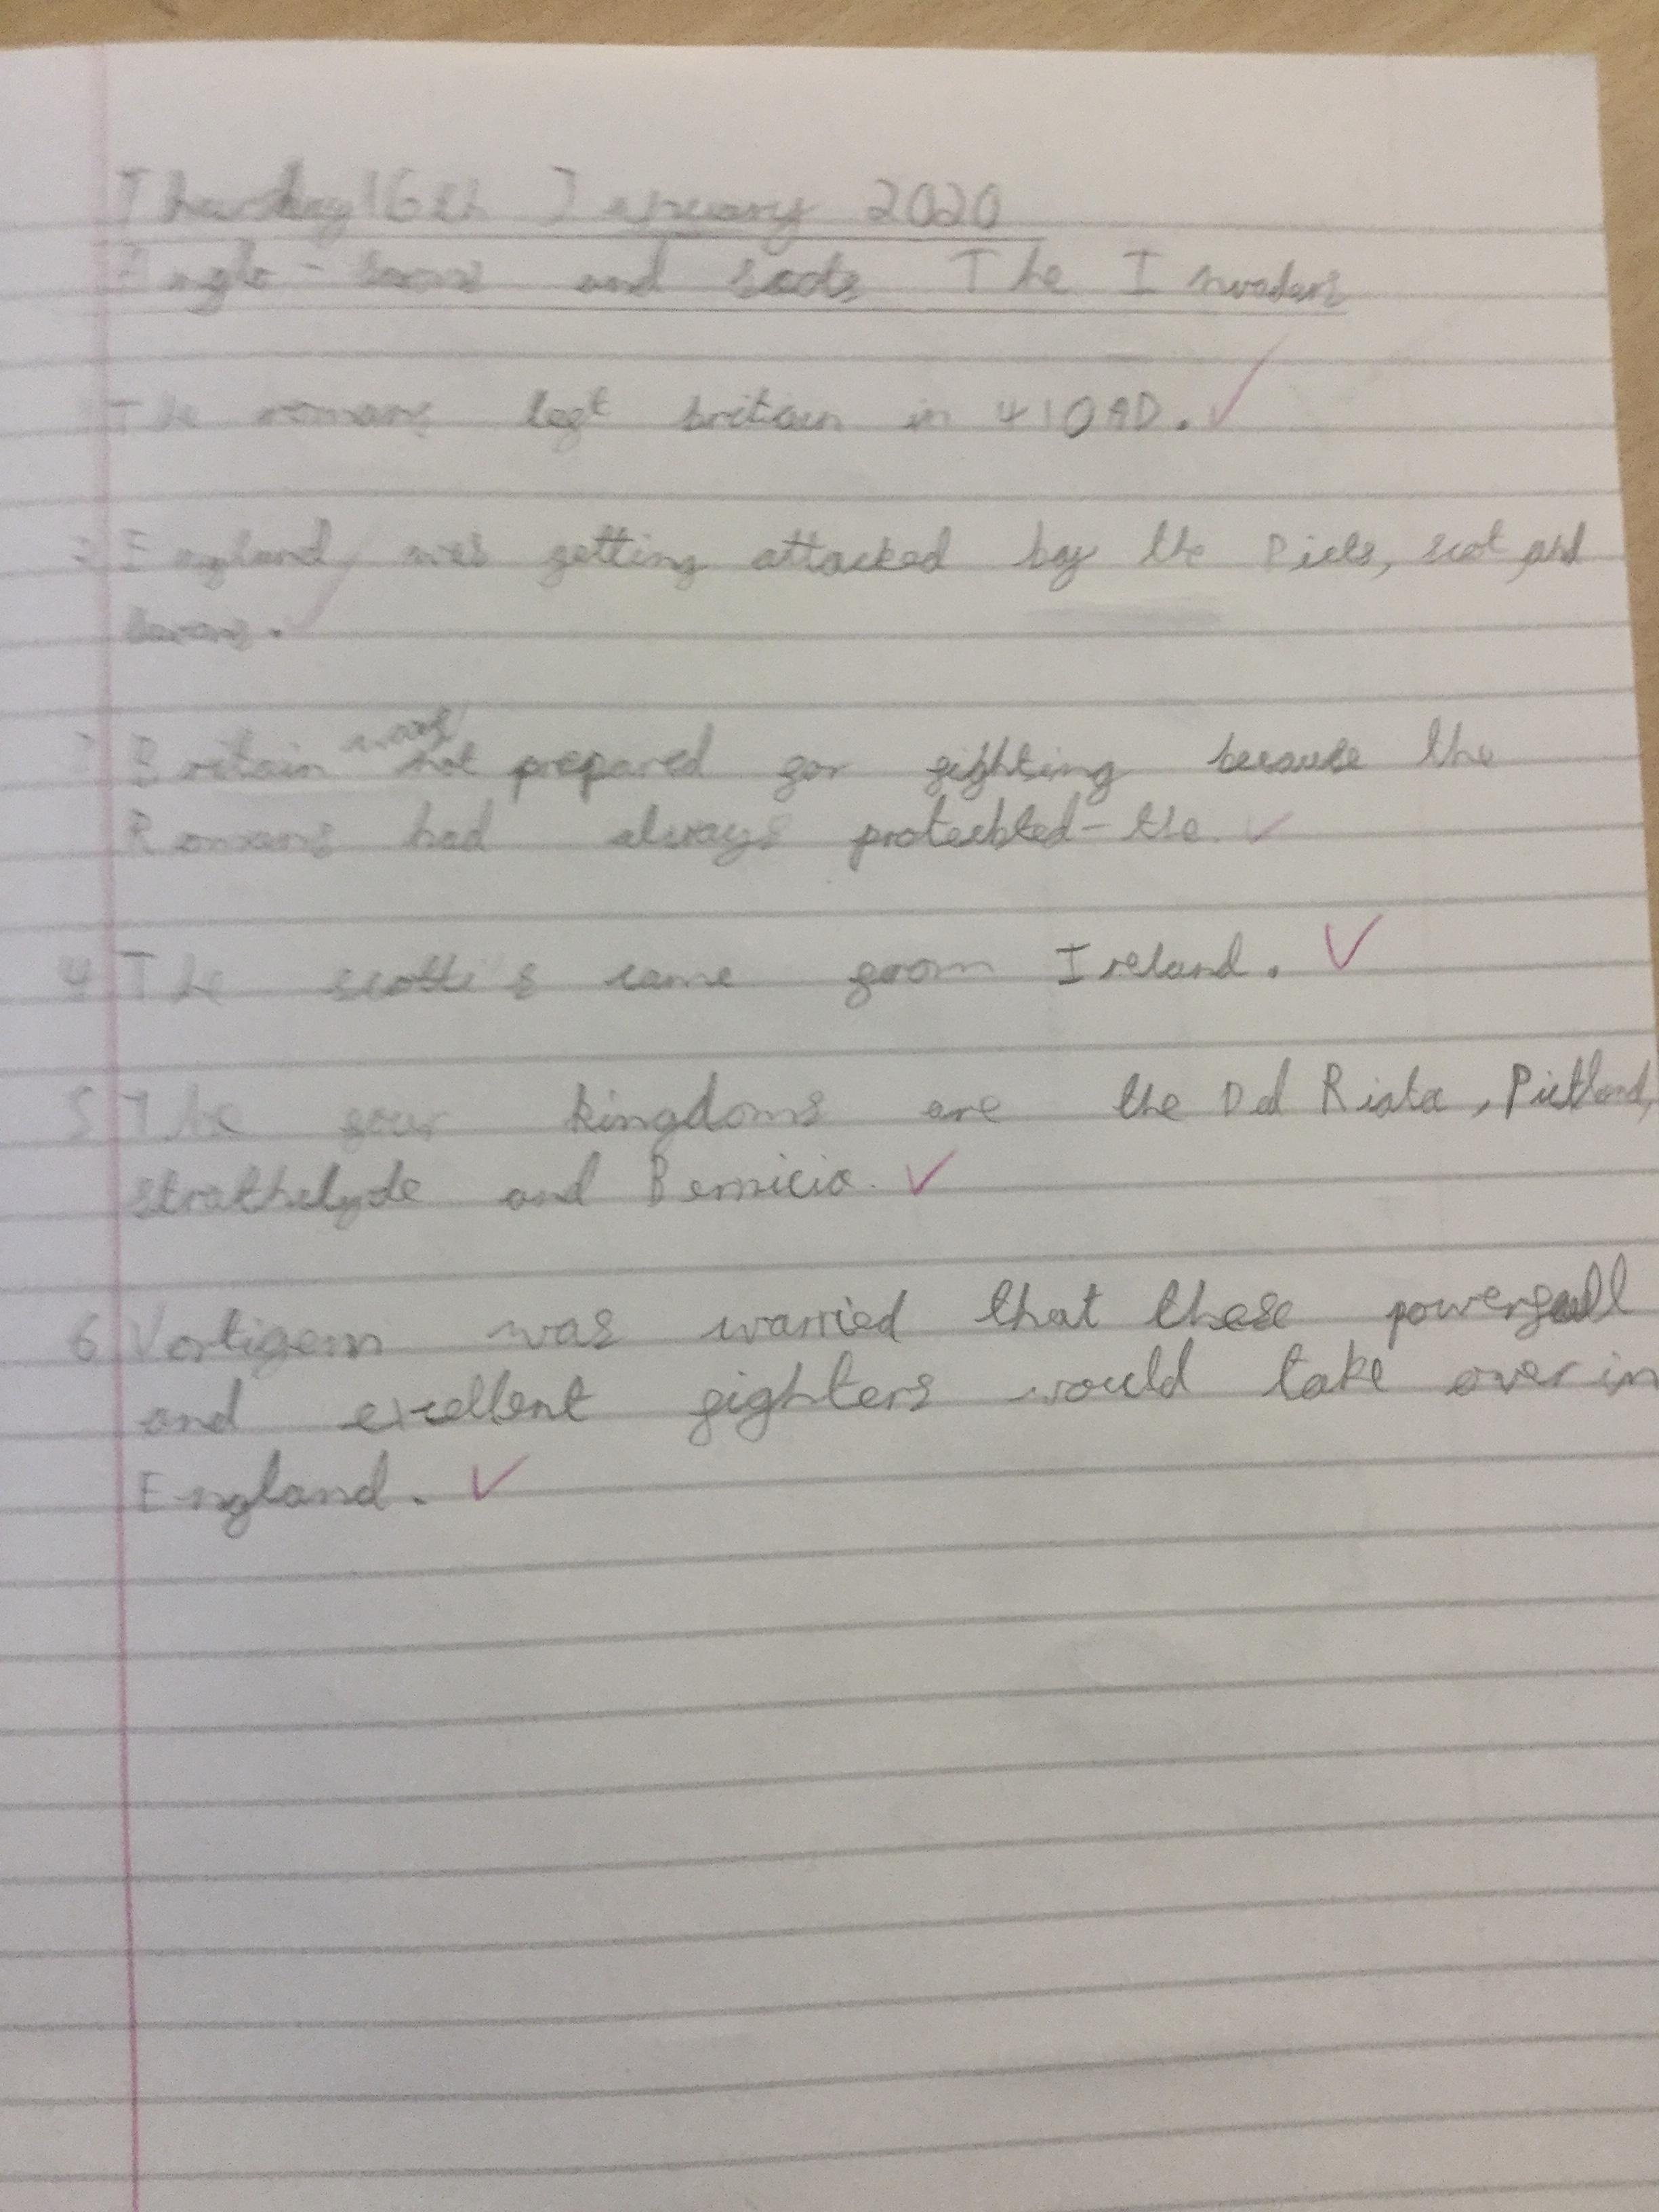 Thursday 16th January 2020
Anglo-saxons and scots The Invaders
The romans left britain in 410AD.
2 England was getting attacked by the Picts, scot and
saxons.
3 Britain was not prepared for fighting because the
Romans had always protected the.
4 The scotti's came from Ireland.
5 The four kingdoms are the Dal Riata, Pictland,
Strathclyde and Bernicia.
6 Vortigern was warried that these powerfull
and excellent fighters would take over in
England.